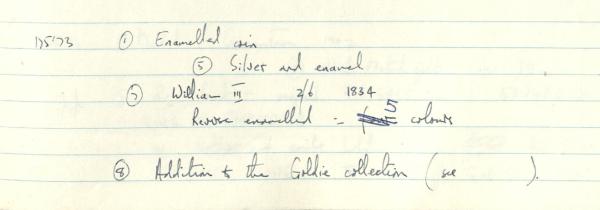 175'73 ① Enamelled coin
⑤ Silver and enamel
⑦ William III 2/6 1834
Reverse enamelled - 5 colours
⑧ Addition to the Goldie collection (see ).